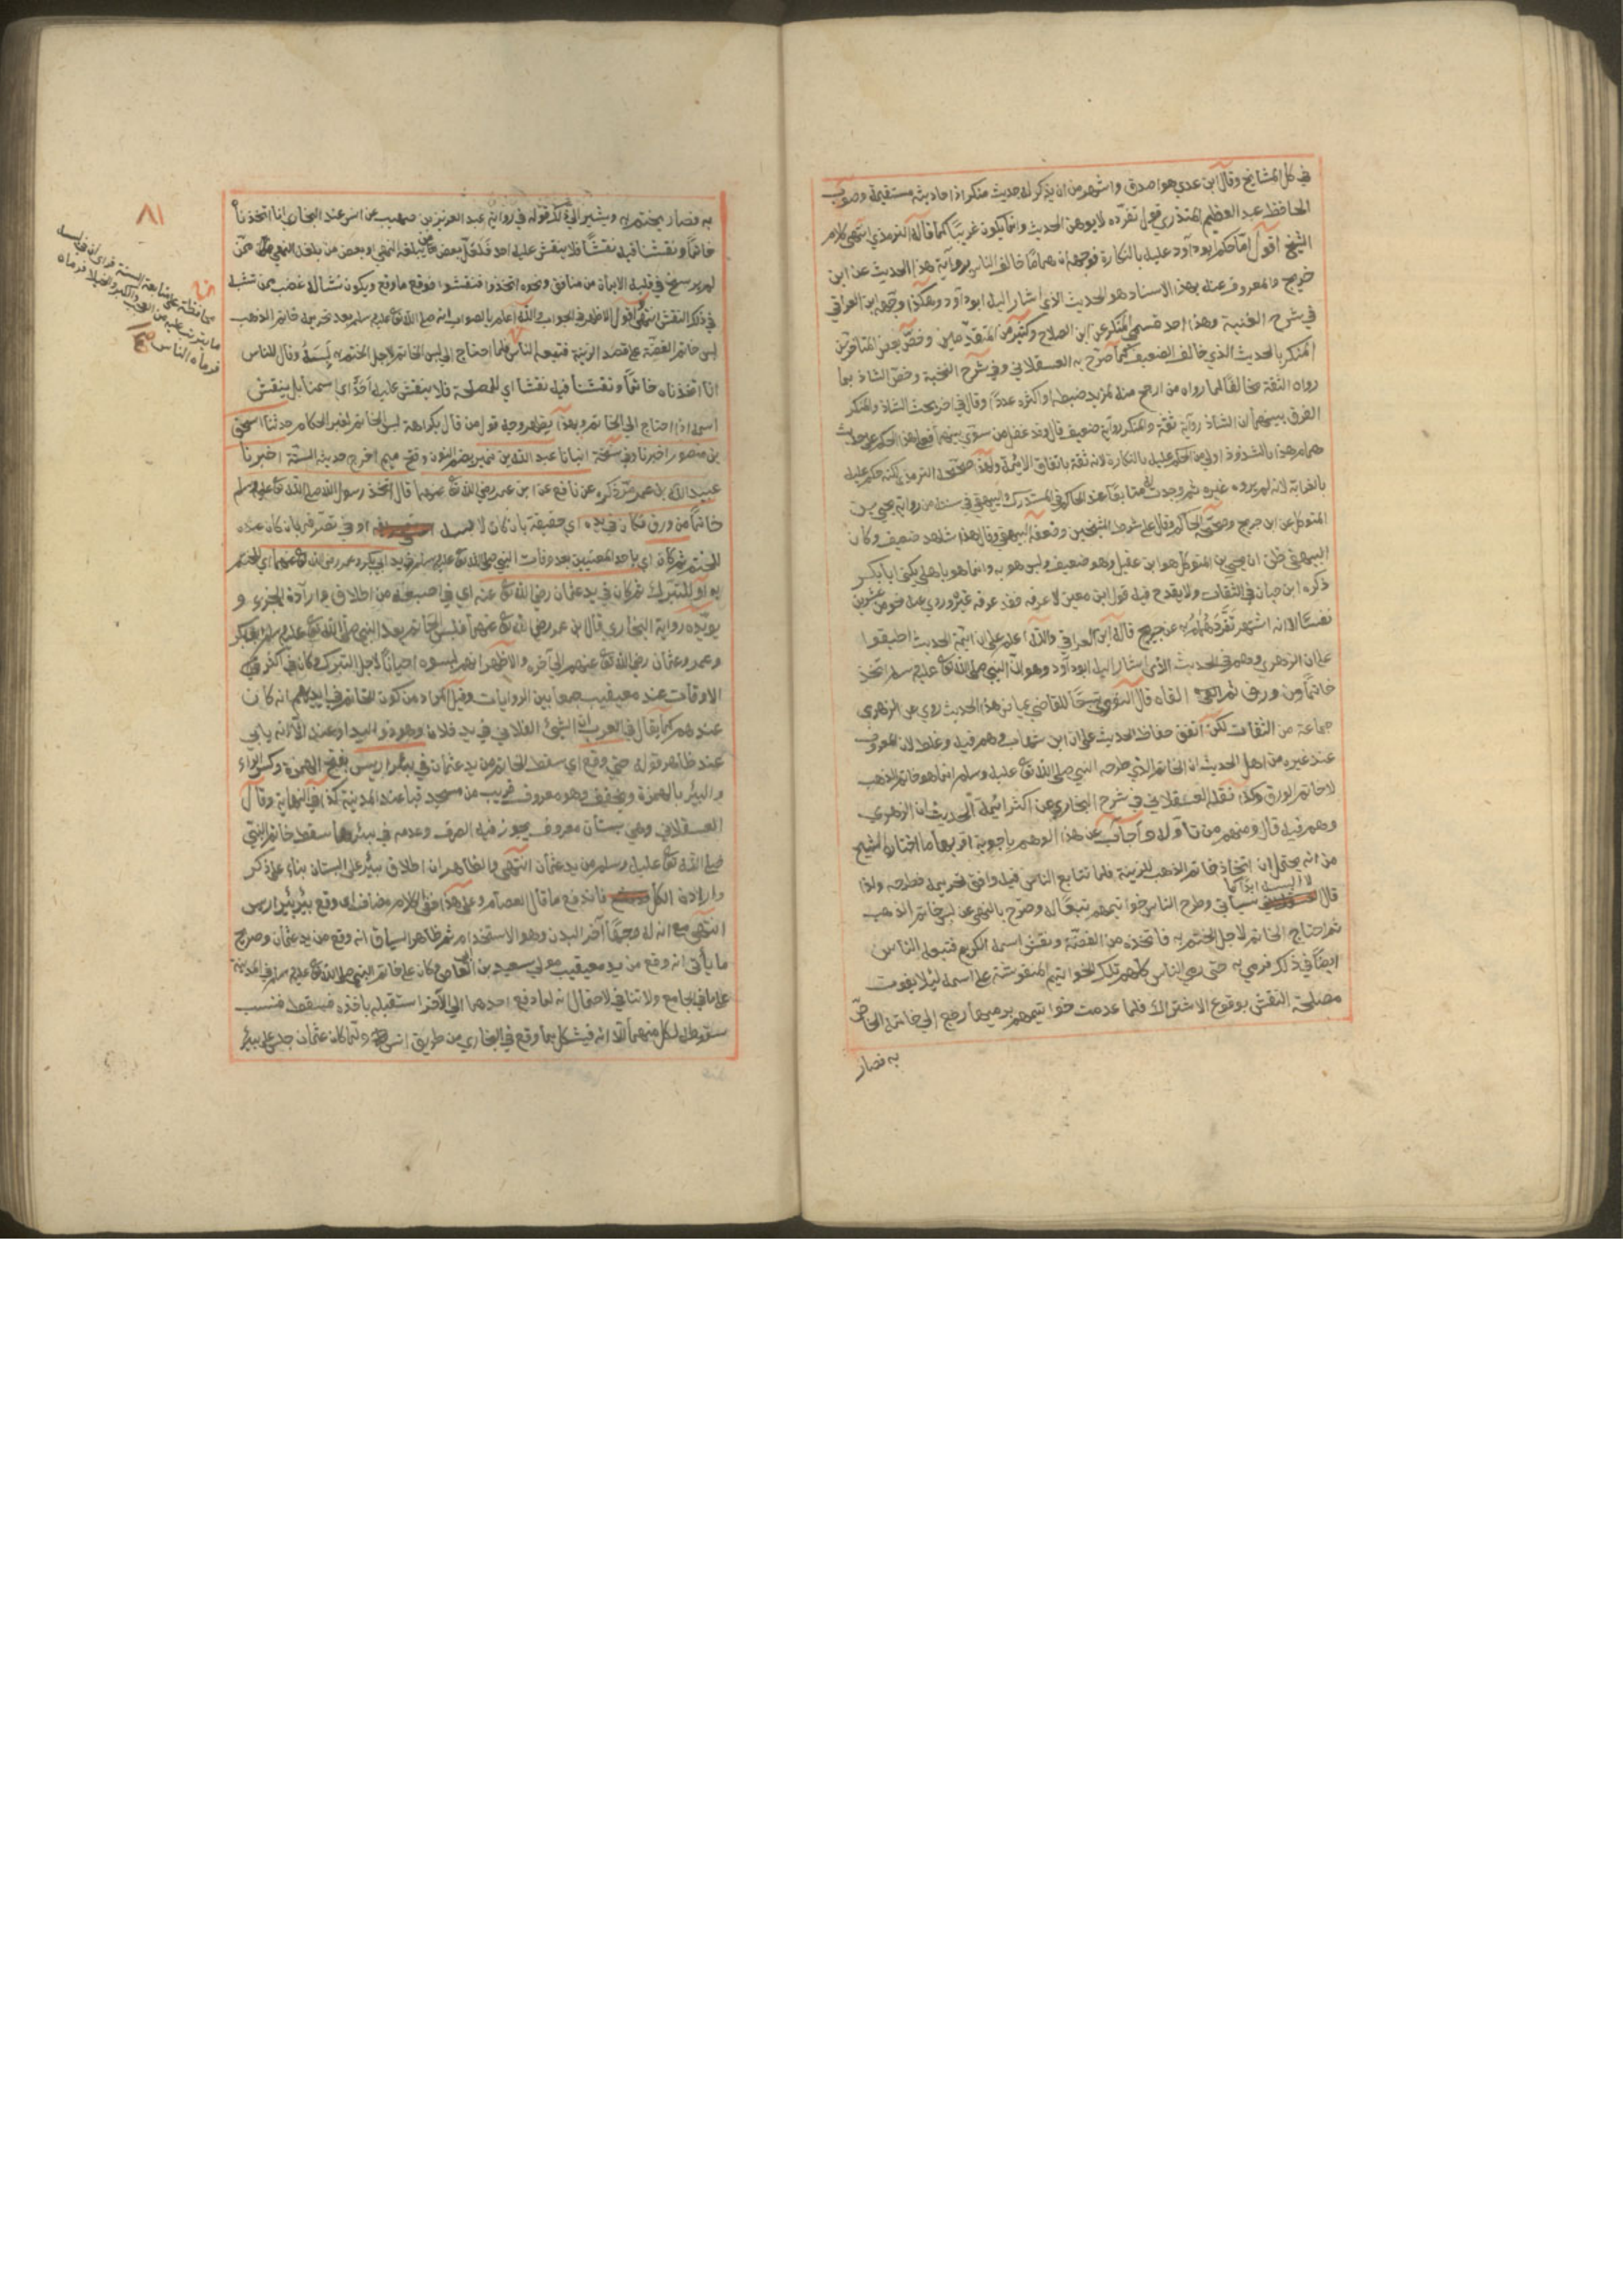 في كل المشايخ وقال ابن عدي هو اصدق واشهر من ان يذكر له حديث منكر اذ احاديثه مستقيمة وصوب
الحافظ عبد العظيم المنذري قول تفرده لا يوهن الحديث وانما يكون غريبا كما قاله الترمذي انتهى كلام
الشيخ اقول اما حكم ابو داود عليه بالنكارة فوجهه ان هماما خالف الناس برواية هذا الحديث عن ابن
جريج والمعروف عنه بهذا الاسناد هو الحديث الذي اشار اليه ابو داود وهكذا وجهه ابن العراقي
في شرح الفنية وهذا احد قسمي المنكر عن ابن الصلاح وكثير من المتقدمين وخص بعض المتأخرين
المنكر بالحديث الذي خالف الضعيف كما صرح به العسقلاني في شرح النخبة وخص الشاذ بما
رواه الثقة مخالفا لما رواه من ارجح منه لمزيد ضبطه او اكثره عددا وقال في اخر بحث الشاذ والمنكر
الفرق بينهما ان الشاذ رواية ثقة والمنكر رواية ضعيف قال وقد غفل من سوى بينهما فعلى هذا الحكم على حديث
همام هذا بالشذوذ اولى من الحكم عليه بالنكارة لانه ثقة باتفاق الائمة ولهذا صححه الترمذي لكنه حكم عليه
بالغرابة لانه لم يروه غيره ثم وجدت له متابقا عند الحاكم في المستدرك والبيهقي في سننه من رواية يحيى بن
المتوكل عن ابن جريج وصححه الحاكم وقال على شرط الشيخين وضعفه البيهقي وقال هذا شاهد ضعيف وكان
البيهقي ظن ان يحيى بن المتوكل هو ابن عقيل وهو ضعيف وليس هو به وانما هو باهلي يكنى ابا بكر
ذكره ابن حبان في الثقات ولا يقدح فيه قول ابن معين لا اعرفه فقد عرفه غيره وروى عنه نحو من عشرين
نفسا الا انه اشتهر تفرد همام به عن جريج قاله ابن العراقي والله اعلم على ان ائمة الحديث اطبقوا
على ان الزهري وهم في الحديث الذي اشار اليه ابو داود وهو ان النبي صلى الله تعالى عليه وسلم اتخذ
خاتما من ورق ثم القاه قال النووي تبعا للقاضي عياض هذا الحديث روي عن الزهري
جماعة من الثقات لكن اتفق حفاظ الحديث على ان ابن شهاب وهم فيه وغلط لان المعروف
عند غيره من اهل الحديث ان الخاتم الذي طرحه النبي صلى الله تعالى عليه وسلم انما هو خاتم الذهب
لا خاتم الورق وكذا نقله العسقلاني في شرح البخاري عن اكثر ائمة الحديث ان الزهري
وهم فيه قال ومنهم من تأوله واجاب عن هذا الوهم باجوبة اقربها ما اختاره الشيخ
من انه يحتمل ان اتخاذ خاتم الذهب للزينة فلما تتابع الناس فيه وافق تحريمه فطرحه ولذا
قال لا البسه ابدا كما سيأتي وطرح الناس خواتيمهم تبعا له وصرح بالنهي عن لبس خاتم الذهب
ثم احتاج الخاتم لاجل الختم به فاتخذه من الفضة ونقش اسمه الكريم فتبعه الناس
ايضا في ذلك فرمي به حتى رمى الناس كلهم تلك الخواتيم المنقوشة على اسمه لئلا يفوت
مصلحة النقش بوقوع الاشتراك فلما عدمت خواتيمهم برميها رجع الى خاتمه الخاص
به فصار
٨١
به فصار يختم به ويشير الى ذلك قوله في رواية عبد العزيز بن صهيب عن انس عند البخاري انا اتخذنا
خاتما ونقشنا فيه نقشا فلا ينقش عليه احد فلعل بعض من لم يبلغه النهي او بعض من بلغه النهي ممن
لم يرسخ في قلبه الايمان من منافق ونحوه اتخذوا فنقشوا فوقع ما وقع ويكون نشأ له غضب ممن تشبه
في ذلك النقش انتهى اقول الاظهر في الجواب والله اعلم بالصواب انه صلى الله تعالى عليه وسلم بعد تحريمه خاتم الذهب
لبس خاتم الفضة على قصد الزينة فتبعه الناس فلما احتاج الى لبس الخاتم لاجل الختم به لبسه وقال للناس
انا اتخذناه خاتما ونقشنا فيه نقشا اي لمصلحة فلا ينقش عليه احد اي اسمنا بل ينقش
اسمه اذا احتاج الى الخاتم وبهذا يظهر وجه قول من قال بكراهة لبس الخاتم لغير الحكام حدثنا اسحق
بن منصور اخبرنا وفي نسخة انبانا عبد الله بن نمير بضم النون وفتح ميم اخرج حديثه الستة اخبرنا
عبيد الله بن عمر مر ذكره عن نافع عن ابن عمر رضي الله تعالى عنهما قال اتخذ رسول الله صلى الله تعالى عليه وسلم
خاتما من ورق فكان في يده اي حقيقة بان كان لابسه او في تصرفه بان كان عنده
للختم ثم كان اي باحد المعنيين بعد وفات النبي صلى الله تعالى عليه وسلم في يد ابي بكر وعمر رضي الله تعالى عنهما اي للختم
به او للتبرك ثم كان في يد عثمان رضي الله تعالى عنه اي في اصبعه من اطلاق وارادة الجزء و
يؤيده رواية البخاري قال ابن عمر رضي الله تعالى عنهما فلبس الخاتم بعد النبي صلى الله تعالى عليه وسلم ابو بكر
وعمر وعثمان رضي الله تعالى عنهم الى آخره والاظهر انهم لبسوه احيانا لاجل التبرك وكان في اكثر
الاوقات عند معيقيب جمعا بين الروايات وقيل المراد من كون الخاتم في ايديهم انه كان
عندهم كما يقال في العرب ان الشيء الفلاني في يد فلان وهو ذو اليد اي عنده الا انه يابى
عند ظاهر قوله حتى وقع اي سقط الخاتم من يد عثمان في بئر اريس بفتح الهمزة وكسر الراء
والبئر بالهمزة ويخفف وهو معروف قريب من مسجد قبا عند المدينة كذا في النهاية وقال
العسقلاني وهي بستان معروف يجوز فيه الصرف وعدمه في بئرها سقط خاتم النبي
صلى الله تعالى عليه وسلم من يد عثمان انتهى والظاهر ان اطلاق بئر على البستان بناء على ذكر
وارادة الكل فاندفع ما قال العصام وعلى هذا ففي الكلام مضاف اي وقع بئر بئر اريس
انتهى مع انه له وجها آخر البدن وهو الاستخدام ثم ظاهر السياق انه وقع من يد عثمان وصريح
ما يأتي انه وقع من يد معيقيب مولى سعيد بن ابي العاص وكان على خاتم النبي صلى الله تعالى عليه وسلم في المدينة
على ما في الجامع ولا تنافي لاحتمال انه لما دفع احدهما الى الآخر استقبله باخذه فسقط فنسب
سقوطه لكل منهما الا انه فيشكل بما وقع في البخاري من طريق انس ولما كان عثمان جلس على بئر
محافظة على متابعة السنة فراى ان في لبسه
ما يترتب عليه من العجب والكبر والخيلاء فرماه
فرماه الناس صح